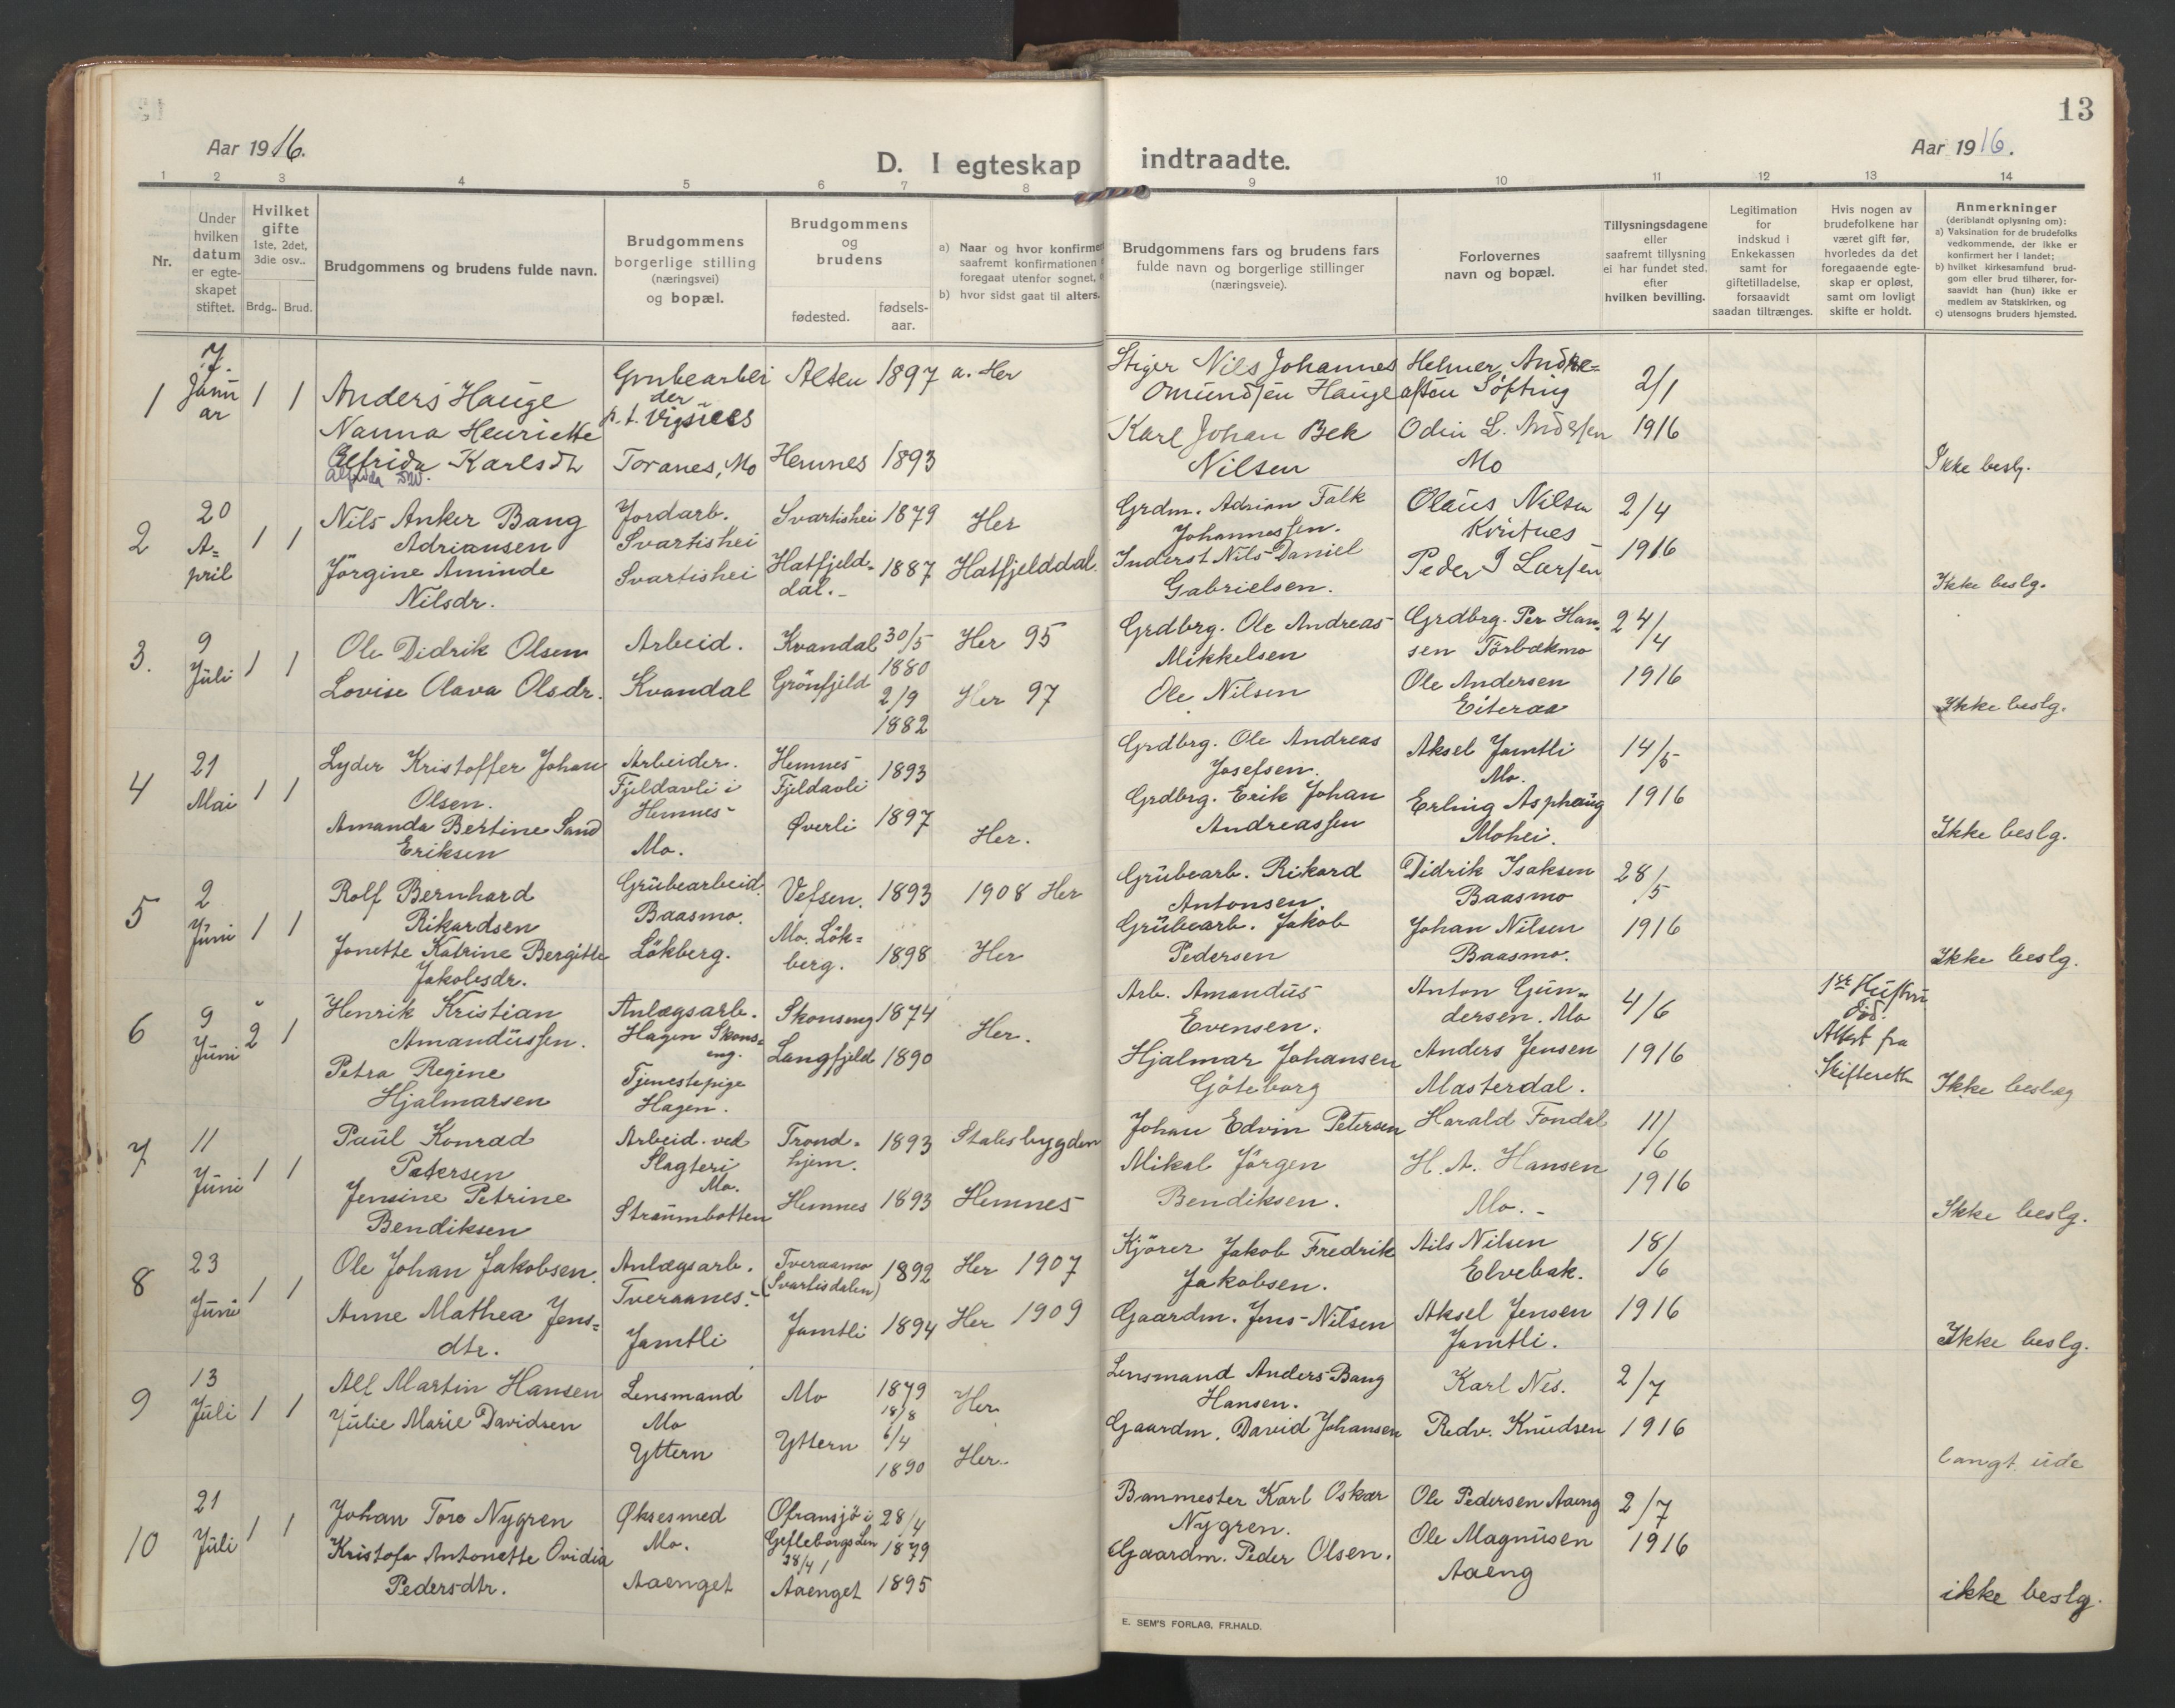 13
Aar 1916.
D. I egteskap indtraadte.
Aar 1916.
1 2 3 4 5 6 7 8 9 10 11 12 13 14
Nr.
Under hvilken datum er egteskapet stiftet.
Hvilket gifte
1ste, 2det, 3die osv..
Brdg.. Brud.
Brudgommens og brudens fulde navn.
Brudgommens borgerlige stilling (næringsvei) og bopæl.
Brudgommens og brudens
fødested.
fødsels-aar.
a) Naar og hvor konfirmert
saafremt konfirmationen
foregaat utenfor sognet,
b) hvor sidst gaat til alters.
Brudgommens fars og brudens fars
fulde navn og borgerlige stillinger
(næringsveie).
Forlovernes
navn og bopæl.
Tillysningsdagene
eller
saafremt tillysning
ei har fundet sted.
efter
hvilken bevilling.
Legitimation
for
indskud i
Enkekassen
samt for
giftetilladelse,
forsaavidt
saadan tiltrænges.
Hvis nogen av
brudefolkene har
været gift før,
hvorledes da det
foregaaende egte-
skap er opløst,
samt om lovligt
skifte er holdt.
Anmerkninger
(deriblandt oplysning om):
a) Vaksination for de brudefolks
vedkommende, der ikke er
konfirmert her i landet;
b) hvilket kirkesamfund brud-
gom eller brud tilhører, for-
saavidt han (hun) ikke er
medlem av Statskirken, og
c) utensogns bruders hjemsted.
1
7. Janu
ar
1 1
Anders Hauge
Nanna Henriette
Elfrida Karlsdtr
Grubearbei
der
p. t. Vigsnes
Toranes, Mo
Alten 1897
Hemnes 1893
a. Her
Stiger Nils Johannes
Omundsen Hauge
Karl Johan Bek
Nilsen
Helmer Andre=
assen Söfting
Odin L. Andersen
Mo
2/1
1916
Ikke beslg.
2
20
A=
pril
1 1
Nils Anker Bang
Adriansen
Jörgine Aminde
Nilsdr.
Jordarb.
Svartishei
Svartishei
Svartishei 1879
Hatfjeld=
dal.- 1887
Her
Hatfjelddal.
Grdm. Adrian Falk
Johannessen.
Inderst Nils Daniel
Gabrielsen.
Olaus Nilsen
Kvitnes
Peder J Larsen
2/4
1916
Ikke beslg.
3.
9
Juli
1 1
Ole Didrik Olsen
Lovise Olava Olsdr.
Arbeid.
Kvandal
Kvandal 30/5
1880
Grönfjeld 2/9
1882
Her 95
Her 97
Grdbrg. Ole Andreas
Mikkelsen
Ole Nilsen
Grdbrg. Per Han=
sen Torbækmo
Ole Andersen
Eiteraa
24/4
1916
Ikke beslg.
4
21
Mai
1 1
Lyder Kristoffer Johan
Olsen.
Amanda Bertine Sand
Eriksen
Arbeider.
Fjeldavli i
Hemnes
Mo.
Hemnes
Fjeldavli 1893
Øverli 1897
Her.
Grdbrg. Ole Andreas
Josefsen.
Grdbrg. Erik Johan
Andreassen
Aksel Jamtli
Mo.
Erling Asphaug
Mohei.
14/5
1916
Ikke beslg.
5
2
Juni
1 1
Rolf Bernhard
Rikardsen
Jonette Katrine Bergitte
Jakobsdr.
Grubearbeid.
Baasmo.
Lökberg.
Vefsen. 1893
Mo. Lök=
berg. 1898
1908 Her
Her
Grubearb. Rikard
Antonsen.
Grubearb. Jakob
Pedersen
Didrik Isaksen
Baasmo
Johan Nilsen
Baasmo.
28/5
1916
Ikke beslg.
6
9
Juni
2 1
Henrik Kristian
Amandussen.
Petra Regine
Hjalmarsen
Anlægsarb.
Hagen Skons=
eng.
Tjenestepige
Hagen.
Skonseng 1874
Langfjeld 1890
Her.
Arb. Amandus
Evensen.
Hjalmar Johansen
Göteborg
Anton Gun=
dersen. Mo
Anders Jensen
Masterdal.
4/6
1916
1ste Hustru
död.
Attest fra
Skifterett
Ikke beslæg
7
11
Juni
1 1
Paul Konrad
Petersen
Jensine Petrine
Bendiksen
Arbeid. ved
Slagteri
Mo.
Straumbotten
Trond=
hjem. 1893
Hemnes 1893
Stadsbygden
Hemnes
Johan Edvin Petersen
Mikal Jörgen
Bendiksen.
Harald Fondal
H. A. Hansen
Mo.-
11/6
1916
Ikke beslg.
8
23
Juni
1 1
Ole Johan Jakobsen.
Anne Mathea Jens=
dtr.
Anlægsarb.
Tveraanes.
Jamtli
Tveraamo
(Svartisdalen) 1892
Jamtli 1894
Her 1907
Her 1909
Kjörer Jakob Fredrik
Jakobsen.
Gaardm. Jens Nilsen
Nils Nilsen
Elvebak.
Aksel Jensen
Jamtli.
18/6
1916
Ikke beslg.
9
13
Juli
1 1
Alf Martin Hansen
Julie Marie Davidsen
Lensmand
Mo
Yttern
Mo 1879
18/8
Yttern 6/4
1890
Her
Her..
Lensmand Anders Bang
Hansen.
Gaardm. David Johansen
Karl Nes.
Redv. Knudsen
2/7
1916
langt ude
10
21
Juli
1 1
Johan Tore Nygren
Kristofa Antonette Ovidia
Pedersdtr.
Øksesmed
Mo.
Aaenget
Ofransjö i
Gefleborgs Len
28/4
1879
28/4
Aaenget 1895
Banmester Karl Oskar
Nygren.
Gaardm. Peder Olsen.
Ole Pedersen Aaeng
Ole Magnusen
Aaeng
2/7
1916
ikke beslg.
E. SEM'S FORLAG, FR.HALD.